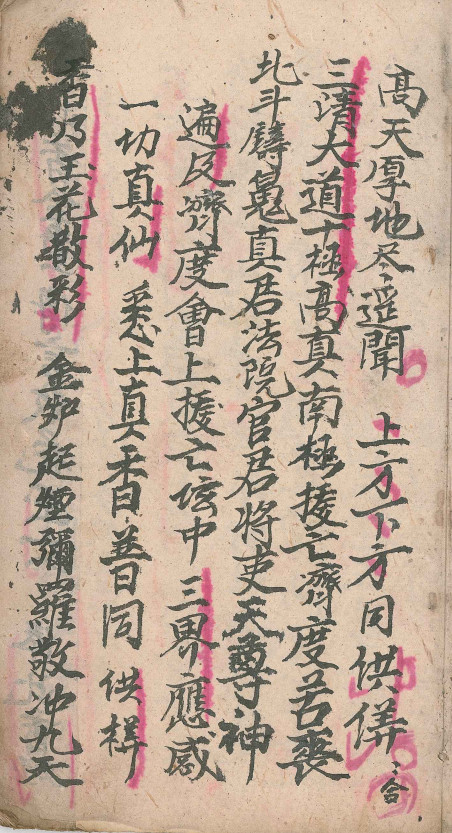 高天厚地尽〻遥聞　上方下方同供𠏉〻合
三清大道十極高真南極援亡濟度苦喪
北斗鑄嵬真君法院官君將吏天尊神
遍及濟度會上援亡壇中　三界應感
一切真仙　悉上真香普同供樣
香乃玉花散彩　金炉起煙彌羅敬冲九天